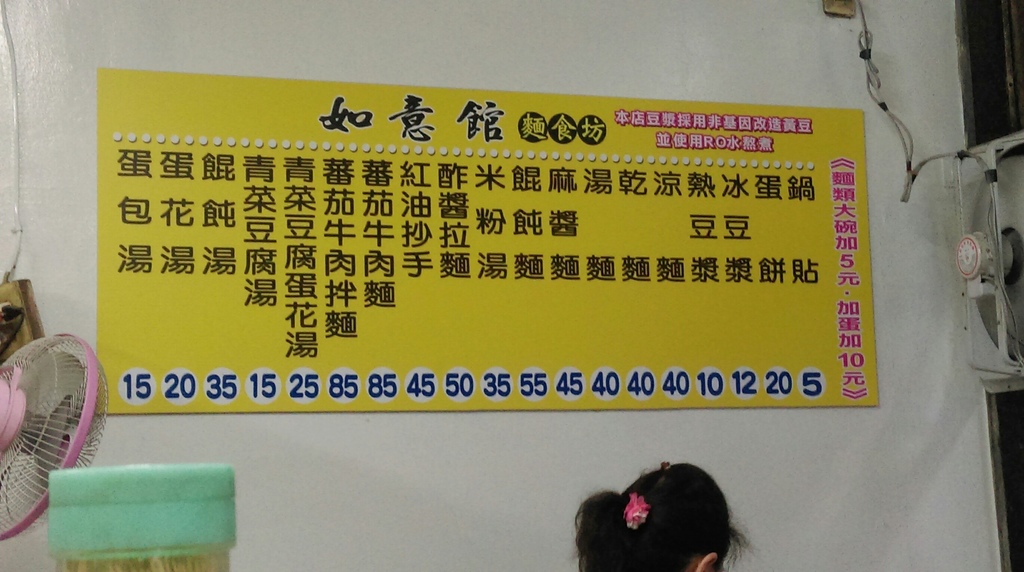 如意館 麵食坊
本店豆漿採用非基因改造黃豆
並使用RO水熬煮
《麵類大碗加5元·加蛋加10元》
鍋貼 5
蛋餅 20
冰豆漿 12
熱豆漿 10
涼麵 40
乾麵 40
湯麵 40
麻醬麵 45
餛飩麵 55
米粉湯 35
酢醬拉麵 50
紅油抄手 45
蕃茄牛肉麵 85
蕃茄牛肉拌麵 85
青菜豆腐蛋花湯 25
青菜豆腐湯 15
餛飩湯 35
蛋花湯 20
蛋包湯 15